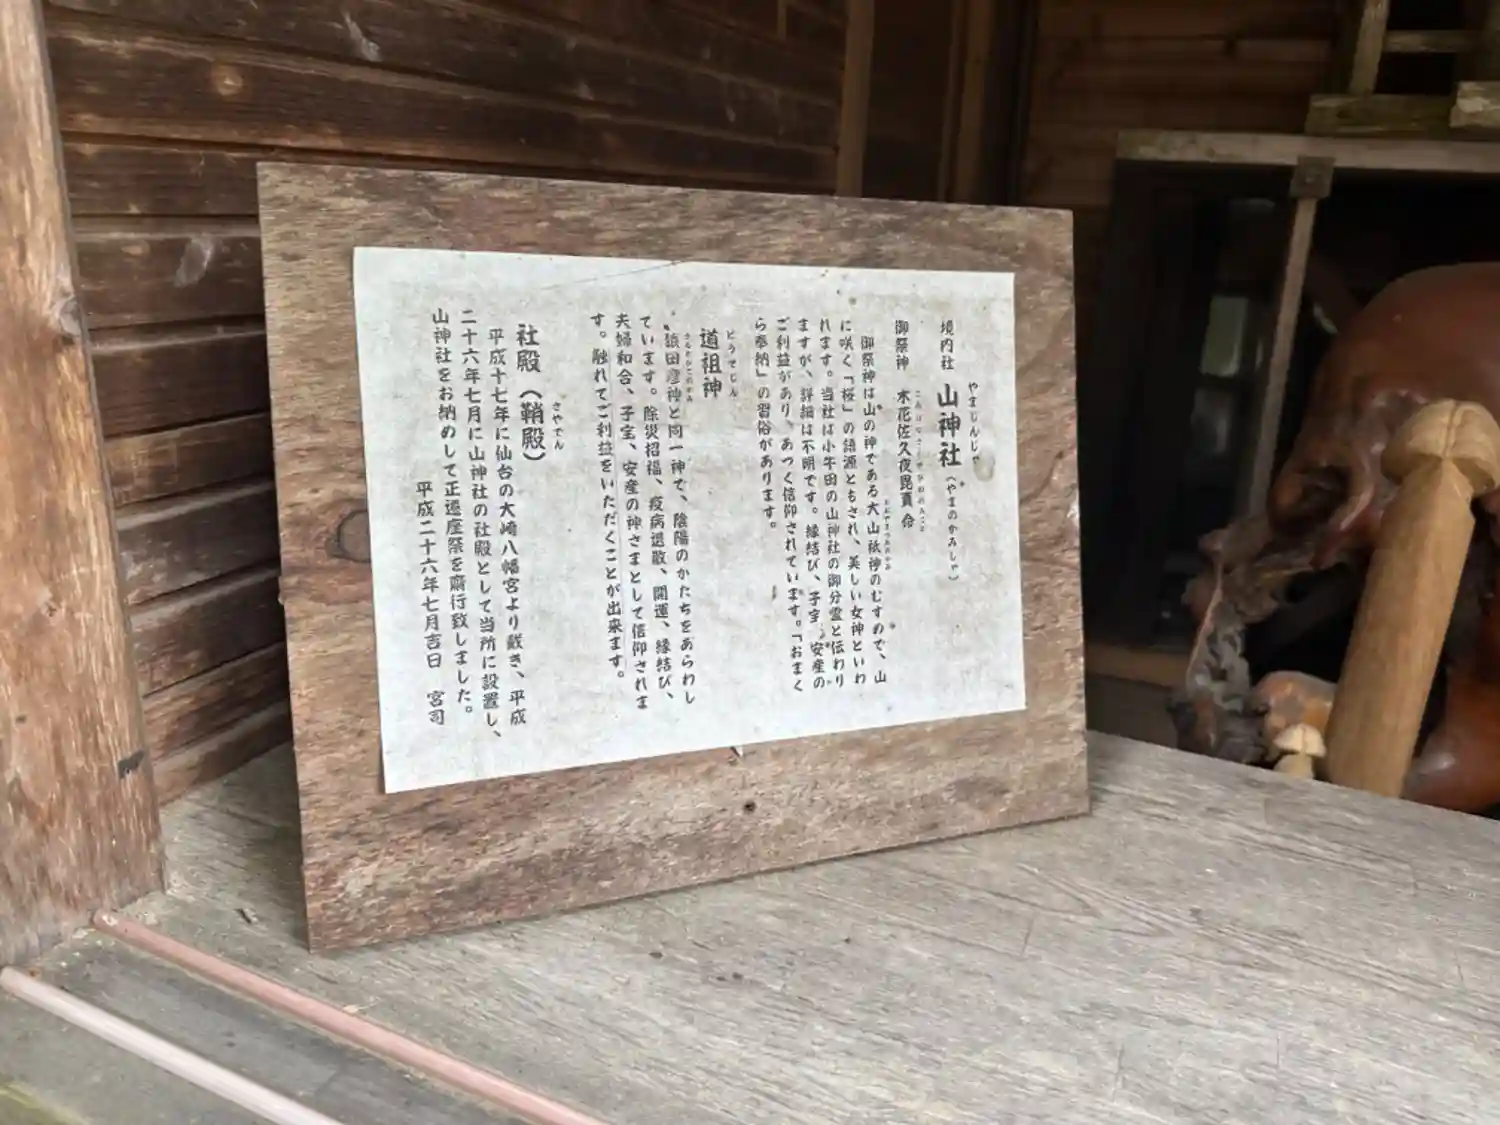 境内社 山神社(やまのかみしゃ)
やまじんじゃ
御祭神 木花佐久夜毘賣命
御祭神は山の神である大山祇神のむすめで、山
に咲く「桜」の語源ともされ、美しい女神といわ
れます。当社は小牛田の山神社の御分霊と伝わり
ますが、詳細は不明です。縁結び、子宝、安産の
ご利益があり、あつく信仰されています。「おまく
ら奉納」の習俗があります。
道祖神
猿田彦神と同一神で、陰陽のかたちをあらわし
ています。除災招福、疫病退散、開運、縁結び、
夫婦和合、子宝、安産の神さまとして信仰されま
す。触れてご利益をいただくことが出来ます。
社殿(鞘殿)
さやでん
平成十七年に仙台の大崎八幡宮より戴き、平成
二十六年七月に山神社の社殿として当所に設置し、
山神社をお納めして正遷座祭を齋行致しました。
平成二十六年七月吉日 宮司